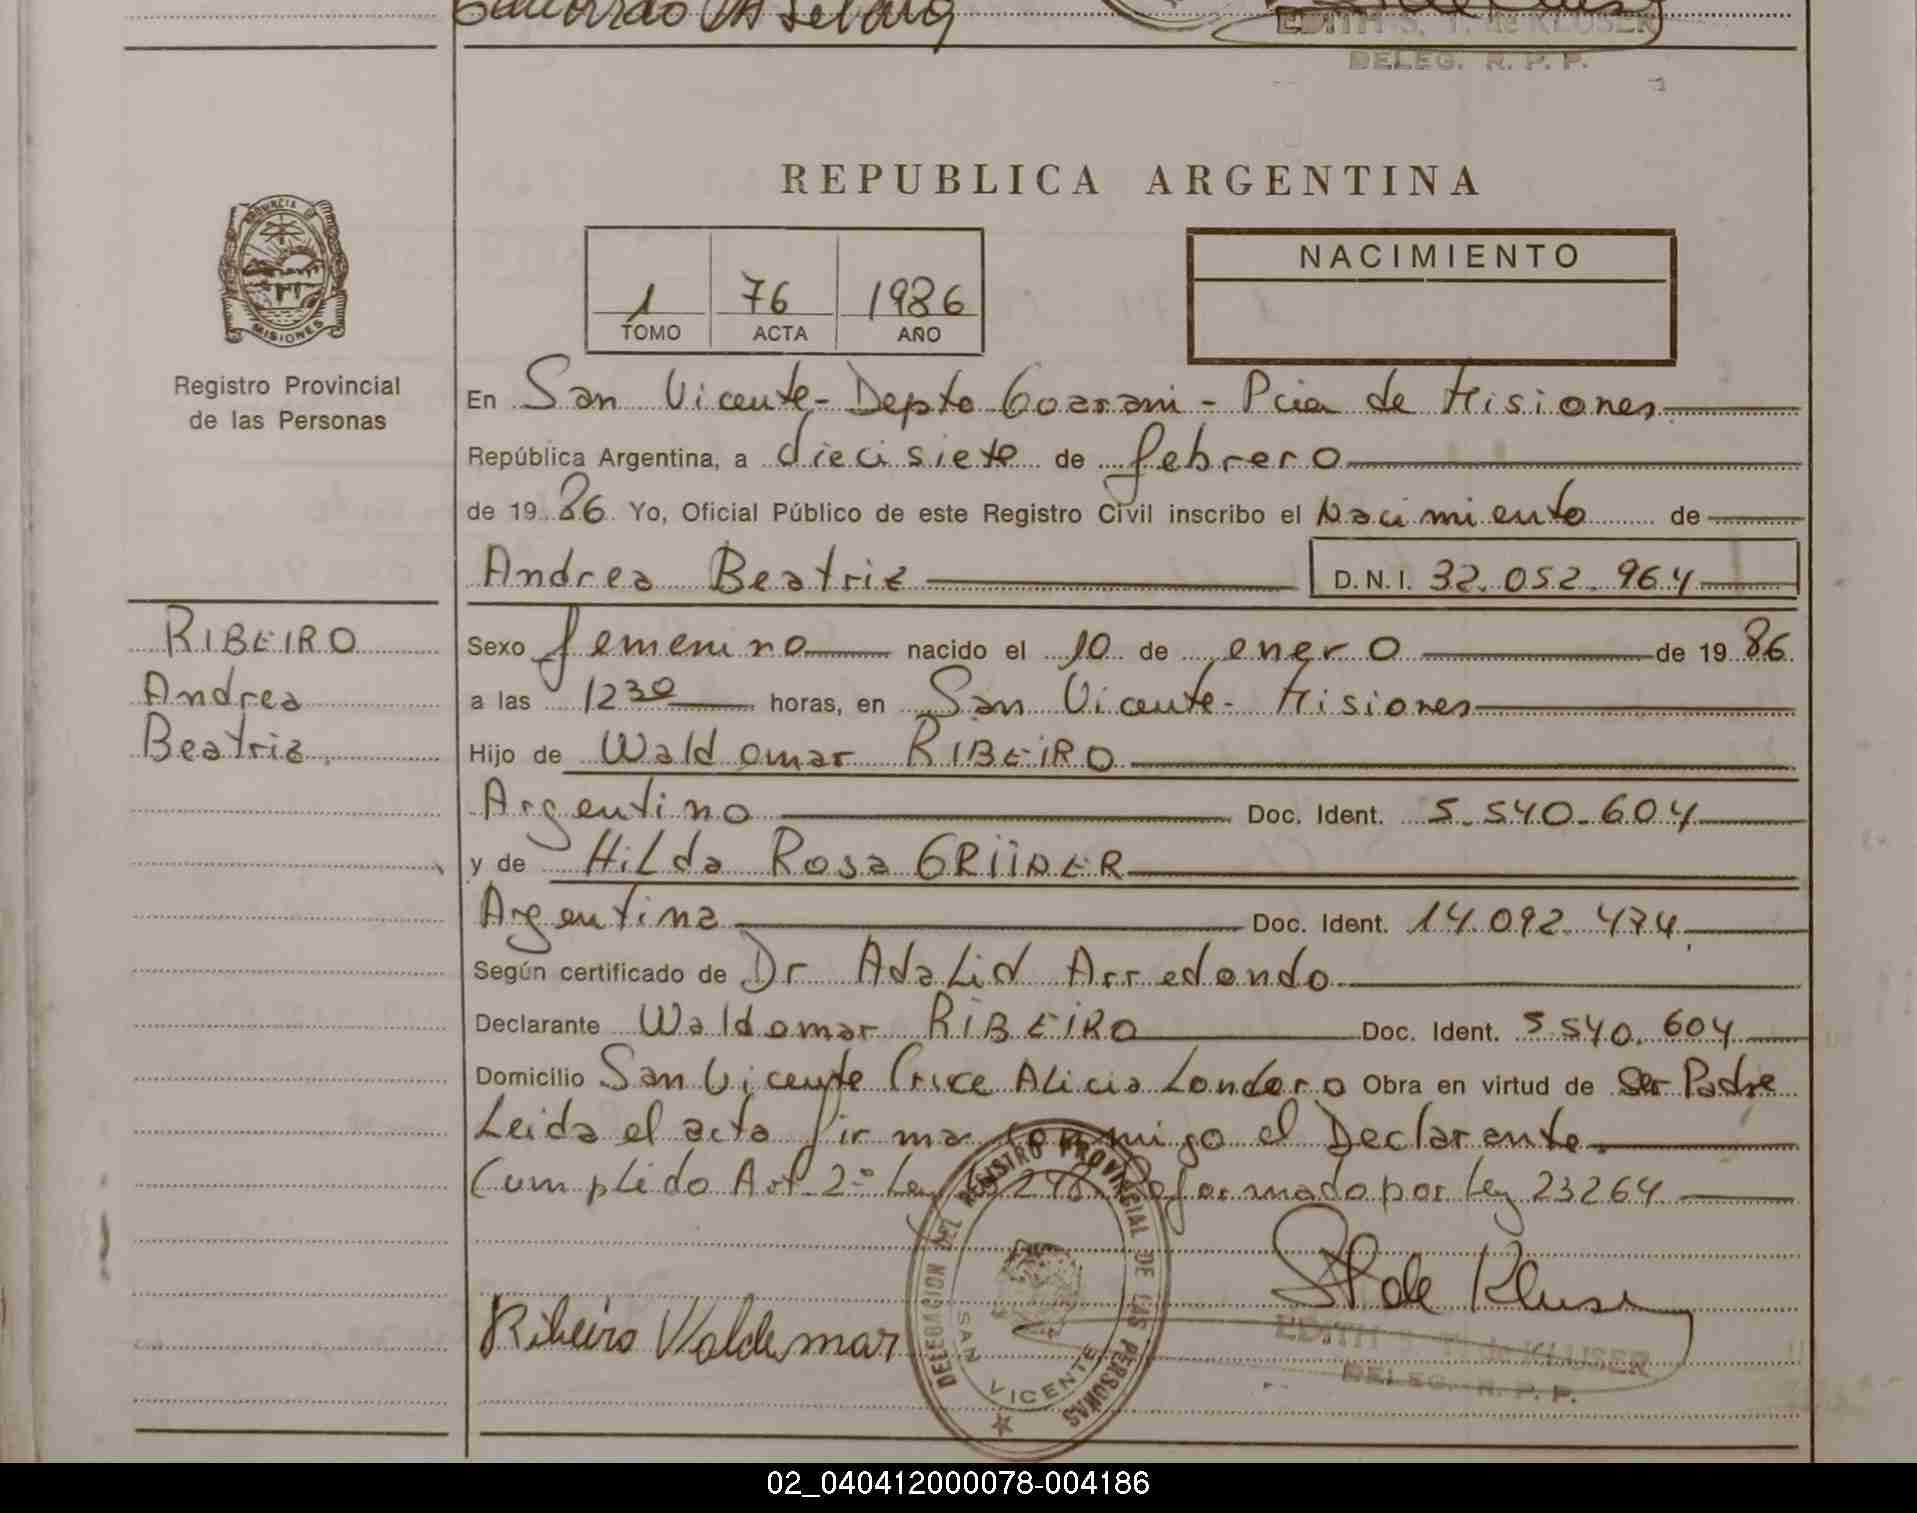 EDITH S. T. de KLUSER
DELEG. R. P. P.
PROVINCIA DE
MISIONES
Registro Provincial
de las Personas
REPUBLICA ARGENTINA
1 76 1986
TOMO ACTA AÑO
NACIMIENTO
En San Vicente - Depto Guarani - Pcia de Misiones
República Argentina, a diecisiete de febrero
de 19 86 Yo, Oficial Público de este Registro Civil inscribo el Nacimiento de
Andrea Beatriz D.N.I. 32.052.964
RIBEIRO
Andrea
Beatriz
Sexo femenino nacido el 10 de enero de 19 86
a las 12 30 horas, en San Vicente - Misiones
Hijo de Waldomar RIBEIRO
Argentino Doc. Ident. 5.540.604
y de Hilda Rosa GRÜNER
Argentina Doc. Ident. 14.092.474
Según certificado de Dr Adalid Arredondo
Declarante Waldomar RIBEIRO Doc. Ident. 5.540.604
Domicilio San Vicente Cruce Alicia Londero Obra en virtud de Ser Padre
Leida el acta firma conmigo el Declarante
Cumplido Art. 2º Ley Reformado por Ley 23264
Ribeiro Valdemar
DELEGACION DEL REGISTRO PROVINCIAL DE LAS PERSONAS
SAN VICENTE
EDITH S. T. de KLUSER
DELEG. R. P. P.
02_040412000078-004186